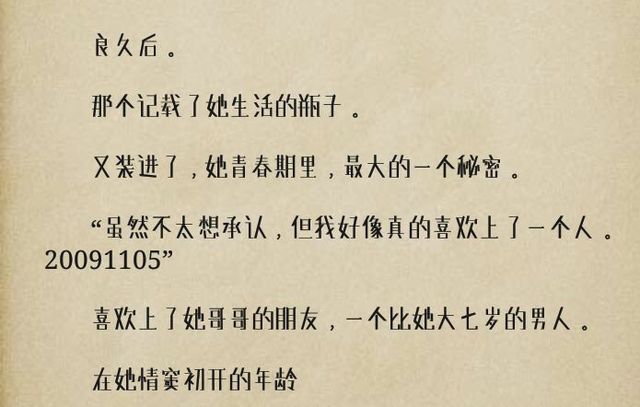 良久后。
那个记载了她生活的瓶子。
又装进了，她青春期里，最大的一个秘密。
“虽然不太想承认，但我好像真的喜欢上了一个人。
20091105”
喜欢上了她哥哥的朋友，一个比她大七岁的男人。
在她情窦初开的年龄